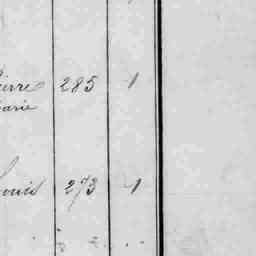 ierre 285 1
arie
ouis 273 1